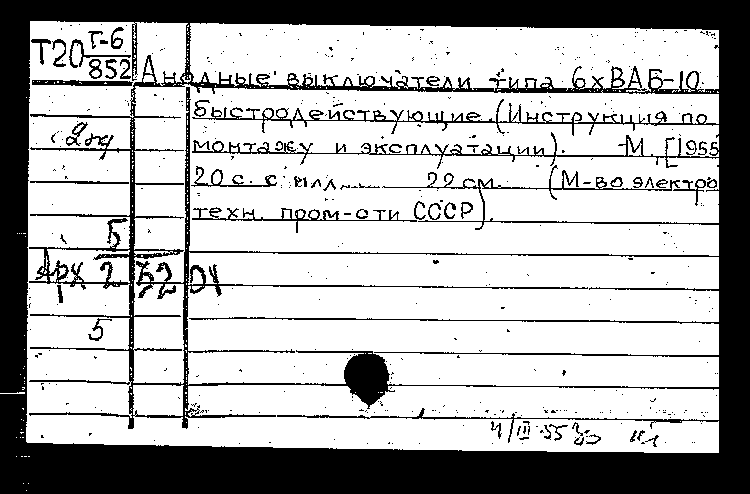 Т20 Т-6
852
Анодные выключатели типа 6хВАБ-10
быстродействующие. (Инструкция по
монтажу и эксплуатации). -М., [1955
20 с. с илл. 22 см. (М-во электро
техн. пром-сти СССР).
Б
Арх 2 32 04
5
4/III-55